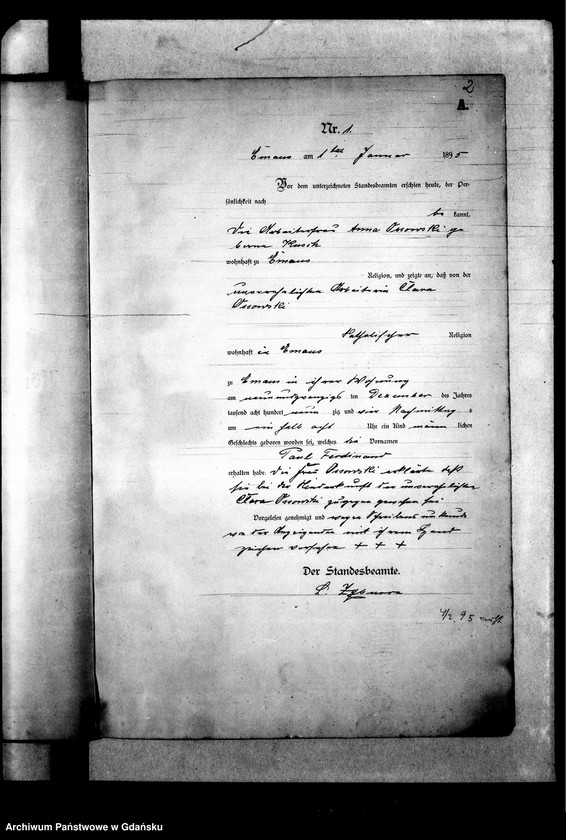 2
A.
Nr. 1.
Emaus am 1ten Januar 1895
Vor dem unterzeichneten Standesbeamten erschien heute, der Per-
sönlichkeit nach
be kannt,
die Arbeiterfrau Anna Ossowski ge
borene Kusch
wohnhaft zu Emaus
Religion, und zeigte an, daß von der
unverehelichten Arbeiterin Clara
Ossowski
katholischer Religion
wohnhaft in Emaus
zu Emaus in ihrer Wohnung
am neunundzwanzigsten Dezember des Jahres
tausend acht hundert neun zig und vier Nachmittag s
um ein halb acht Uhr ein Kind männ lichen
Geschlechts geboren worden sei, welches die Vornamen
Paul Ferdinand
erhalten habe. Die Frau Ossowski erklärte daß
sie bei der Niederkunft der unverehelichten
Clara Ossowski zugegen gewesen sei
Vorgelesen, genehmigt und wegen Schreibens unkunde
von der Anzeigenden mit ihrem Hand
zeichen versehen + + +
Der Standesbeamte.
4/2. 95
Archiwum Państwowe w Gdańsku